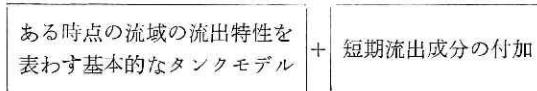 ある時点の流域の流出特性を
表わす基本的なタンクモデル
+
短期流出成分の付加